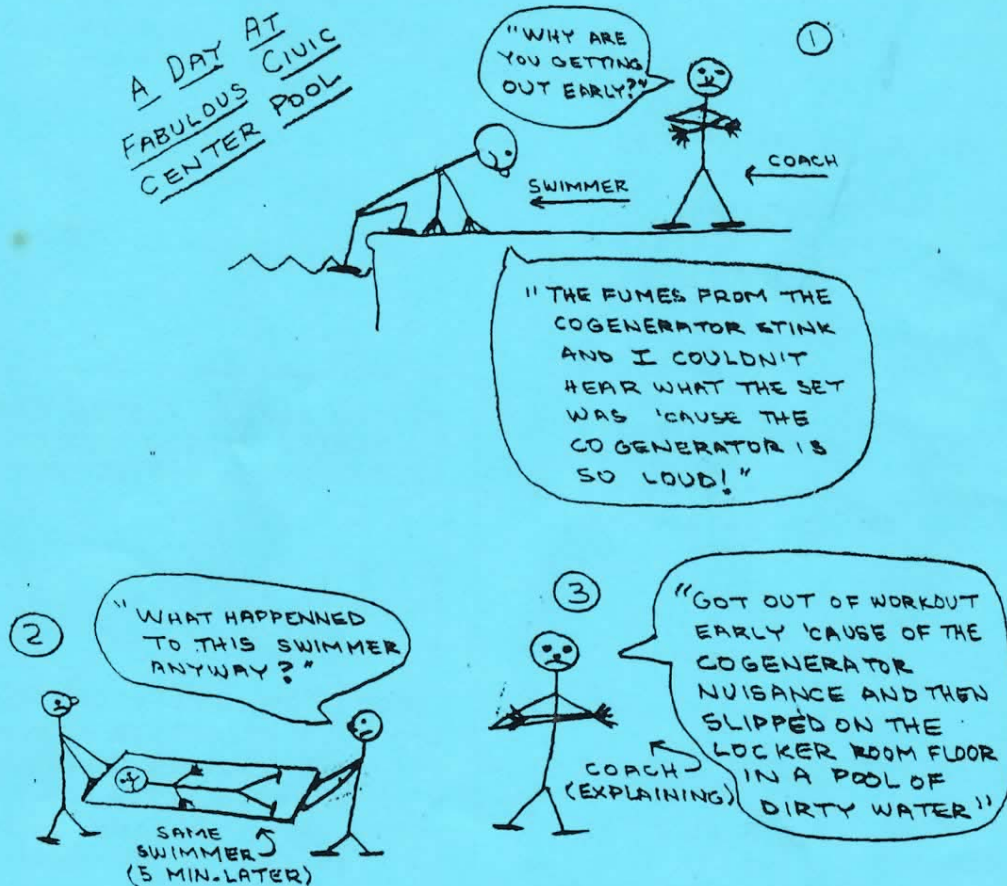 A DAY AT
FABULOUS CIVIC
CENTER POOL
1
"WHY ARE
YOU GETTING
OUT EARLY?"
COACH
SWIMMER
"THE FUMES FROM THE
COGENERATOR STINK
AND I COULDN'T
HEAR WHAT THE SET
WAS 'CAUSE THE
COGENERATOR IS
SO LOUD!"
2
"WHAT HAPPENNED
TO THIS SWIMMER
ANYWAY?"
SAME
SWIMMER
(5 MIN. LATER)
3
"GOT OUT OF WORKOUT
EARLY 'CAUSE OF THE
COGENERATOR
NUISANCE AND THEN
SLIPPED ON THE
LOCKER ROOM FLOOR
IN A POOL OF
DIRTY WATER"
COACH
(EXPLAINING)